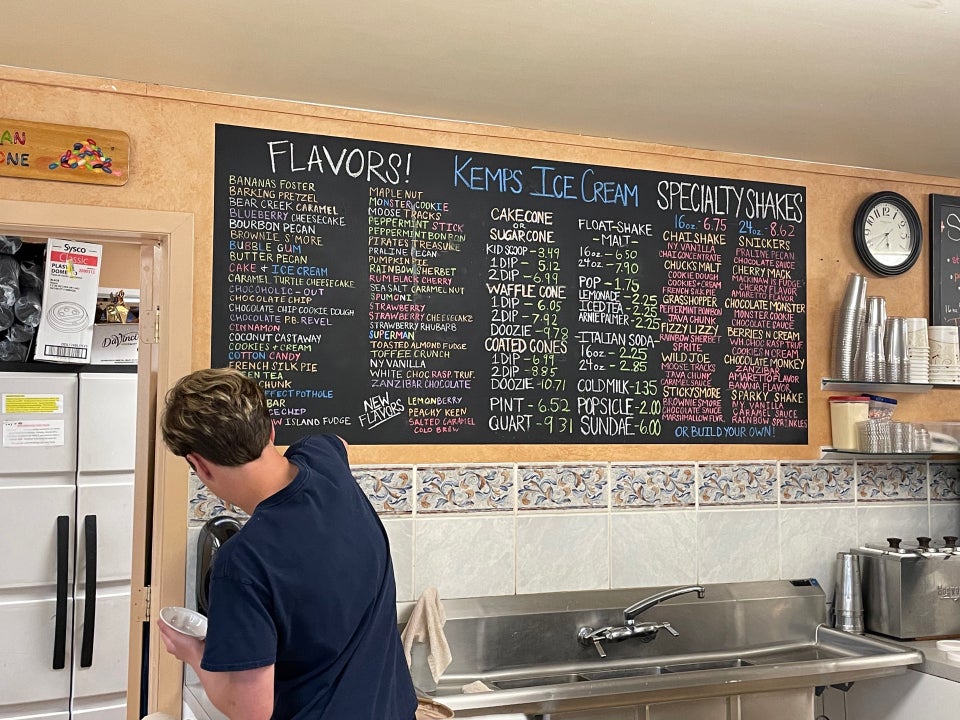 AN
ONE
Sysco
Classic
PLAST
DOME
DaVinci
FLAVORS!
BANANAS FOSTER
BARKING PRETZEL
BEAR CREEK CARAMEL
BLUEBERRY CHEESECAKE
BOURBON PECAN PIE
BROWNIE S'MORE
BUBBLE GUM
BUTTER PECAN
CAKE & ICE CREAM
CARAMEL TURTLE CHEESECAKE
CHOCOHOLIC-OUT
CHOCOLATE CHIP
CHOCOLATE CHIP COOKIE DOUGH
CHOCOLATE P.B. REVEL
CINNAMON
COCONUT CASTAWAY
COOKIES & CREAM
COTTON CANDY
FRENCH SILK PIE
EEN TEA
CHUNK
EFFECT POTHOLE
BAR
CECHIP
ISLAND FUDGE
MAPLE NUT
MONSTER COOKIE
MOOSE TRACKS
PEPPERMINT STICK
PEPPERMINT BON BON
PIRATES TREASURE
PRALINE PECAN
PUMPKIN PIE
RAINBOW SHERBET
RUM BLACK CHERRY
SEA SALT CARAMEL NUT
SPUMONI
STRAWBERRY
STRAWBERRY CHEESECAKE
STRAWBERRY RHUBARB
SUPERMAN
TOASTED ALMOND FUDGE
TOFFEE CRUNCH
NY VANILLA
WHITE CHOC RASP. TRUF.
ZANZIBAR CHOCOLATE
NEW
FLAVORS
LEMONBERRY
PEACHY KEEN
SALTED CARAMEL
COLD BREW
KEMPS ICE CREAM
CAKE CONE
OR
SUGAR CONE
KID SCOOP - 3.49
1 DIP - 5.12
2 DIP - 6.99
WAFFLE CONE
1 DIP - 6.05
2 DIP - 7.92
DOOZIE - 9.78
COATED CONES
1 DIP - 6.99
2 DIP - 8.85
DOOZIE - 10.71
PINT - 6.52
QUART - 9.31
FLOAT-SHAKE
-MALT-
16oz - 6.50
24oz - 7.90
POP - 1.75
LEMONADE - 2.25
ICED TEA - 2.25
ARNIE PALMER - 2.25
ITALIAN SODA-
16oz - 2.25
24oz - 2.85
COLD MILK - 1.35
POPSICLE - 2.00
SUNDAE - 6.00
SPECIALTY SHAKES
16oz - 6.75 24oz - 8.62
CHAI SHAKE
NY VANILLA
CHAI CONCENTRATE
CHUCK'S MALT
COOKIE DOUGH
COOKIES & CREAM
FRENCH SILK PIE
GRASSHOPPER
PEPPERMINT BONBON
JAVA CHUNK
FIZZY LIZZY
RAINBOW SHERBET
SPRITE
WILD JOE
MOOSE TRACKS
JAVA CHUNK
CARAMEL SAUCE
STICKY S'MORE
BROWNIE S'MORE
CHOCOLATE SAUCE
MARSHMALLOW FLVR.
SNICKERS
PRALINE PECAN
CHOCOLATE SAUCE
CHERRY MARK
MACKINAW IS FUDGE
CHERRY FLAVOR
AMARETTO FLAVOR
CHOCOLATE MONSTER
MONSTER COOKIE
CHOCOLATE SAUCE
BERRIES N CREAM
WH. CHOC RASP. TRUF.
COOKIES N CREAM
CHOCOLATE MONKEY
ZANZIBAR
AMARETTO FLAVOR
BANANA FLAVOR
SPARKY SHAKE
NY VANILLA
CARAMEL SAUCE
RAINBOW SPRINKLES
OR BUILD YOUR OWN!